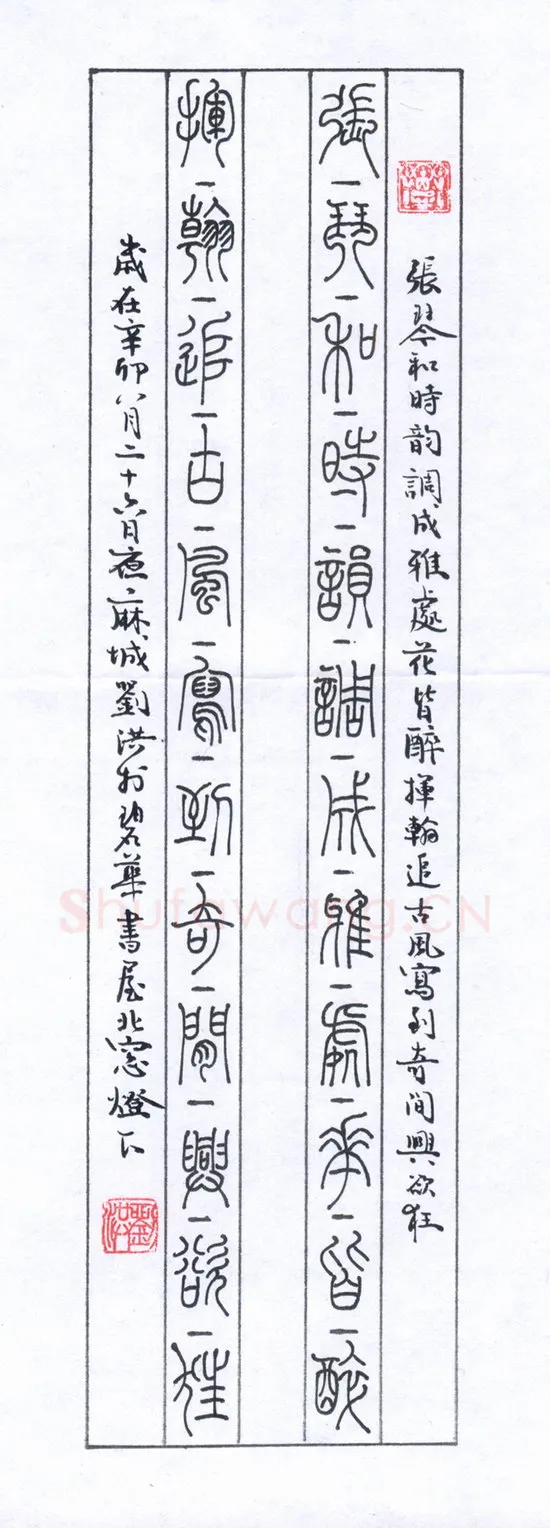 張琴和時韵調成雅處花皆醉揮翰追古風寫到奇間興欲狂
張琴和時韻調成雅處華皆醉
揮翰追古風寫到奇間興欲狂
歲在辛卯八月二十六日夜麻城劉洪於碧華書屋北窓燈下
劉洪
Shufawang.CN